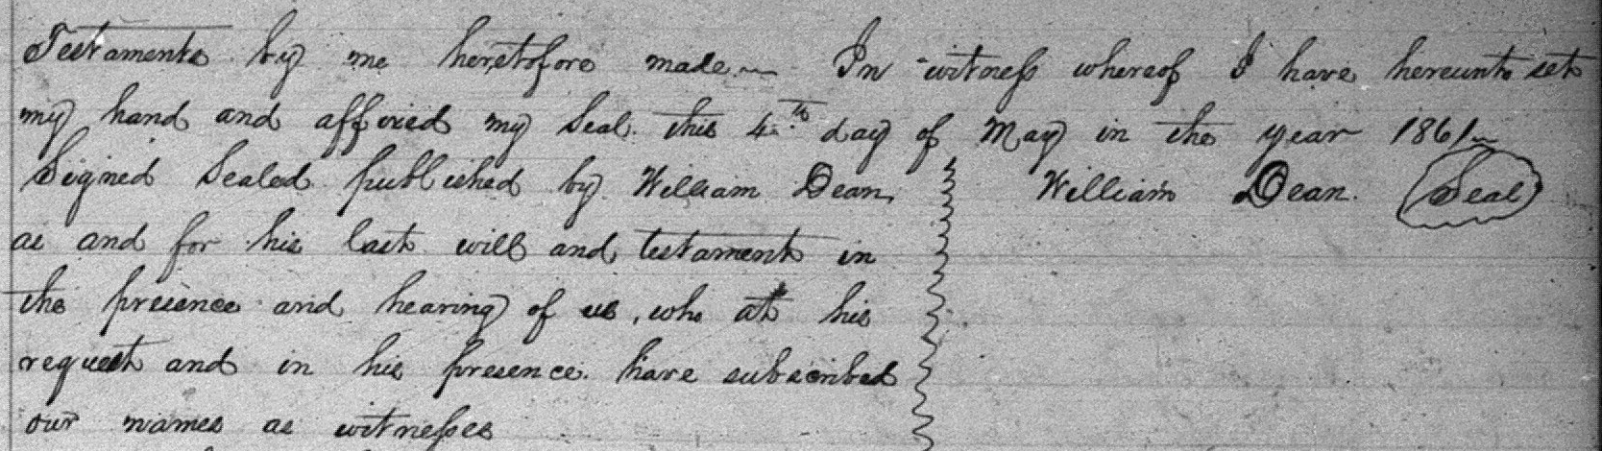 Testaments by me heretofore made. In witness whereof I have hereunto set
my hand and affixed my Seal this 4th day of May in the year 1861
Signed Sealed published by William Dean, William Dean. Seal
as and for his last will and testament in
the presence and hearing of us, who at his
request and in his presence have subscribed
our names as witnesses